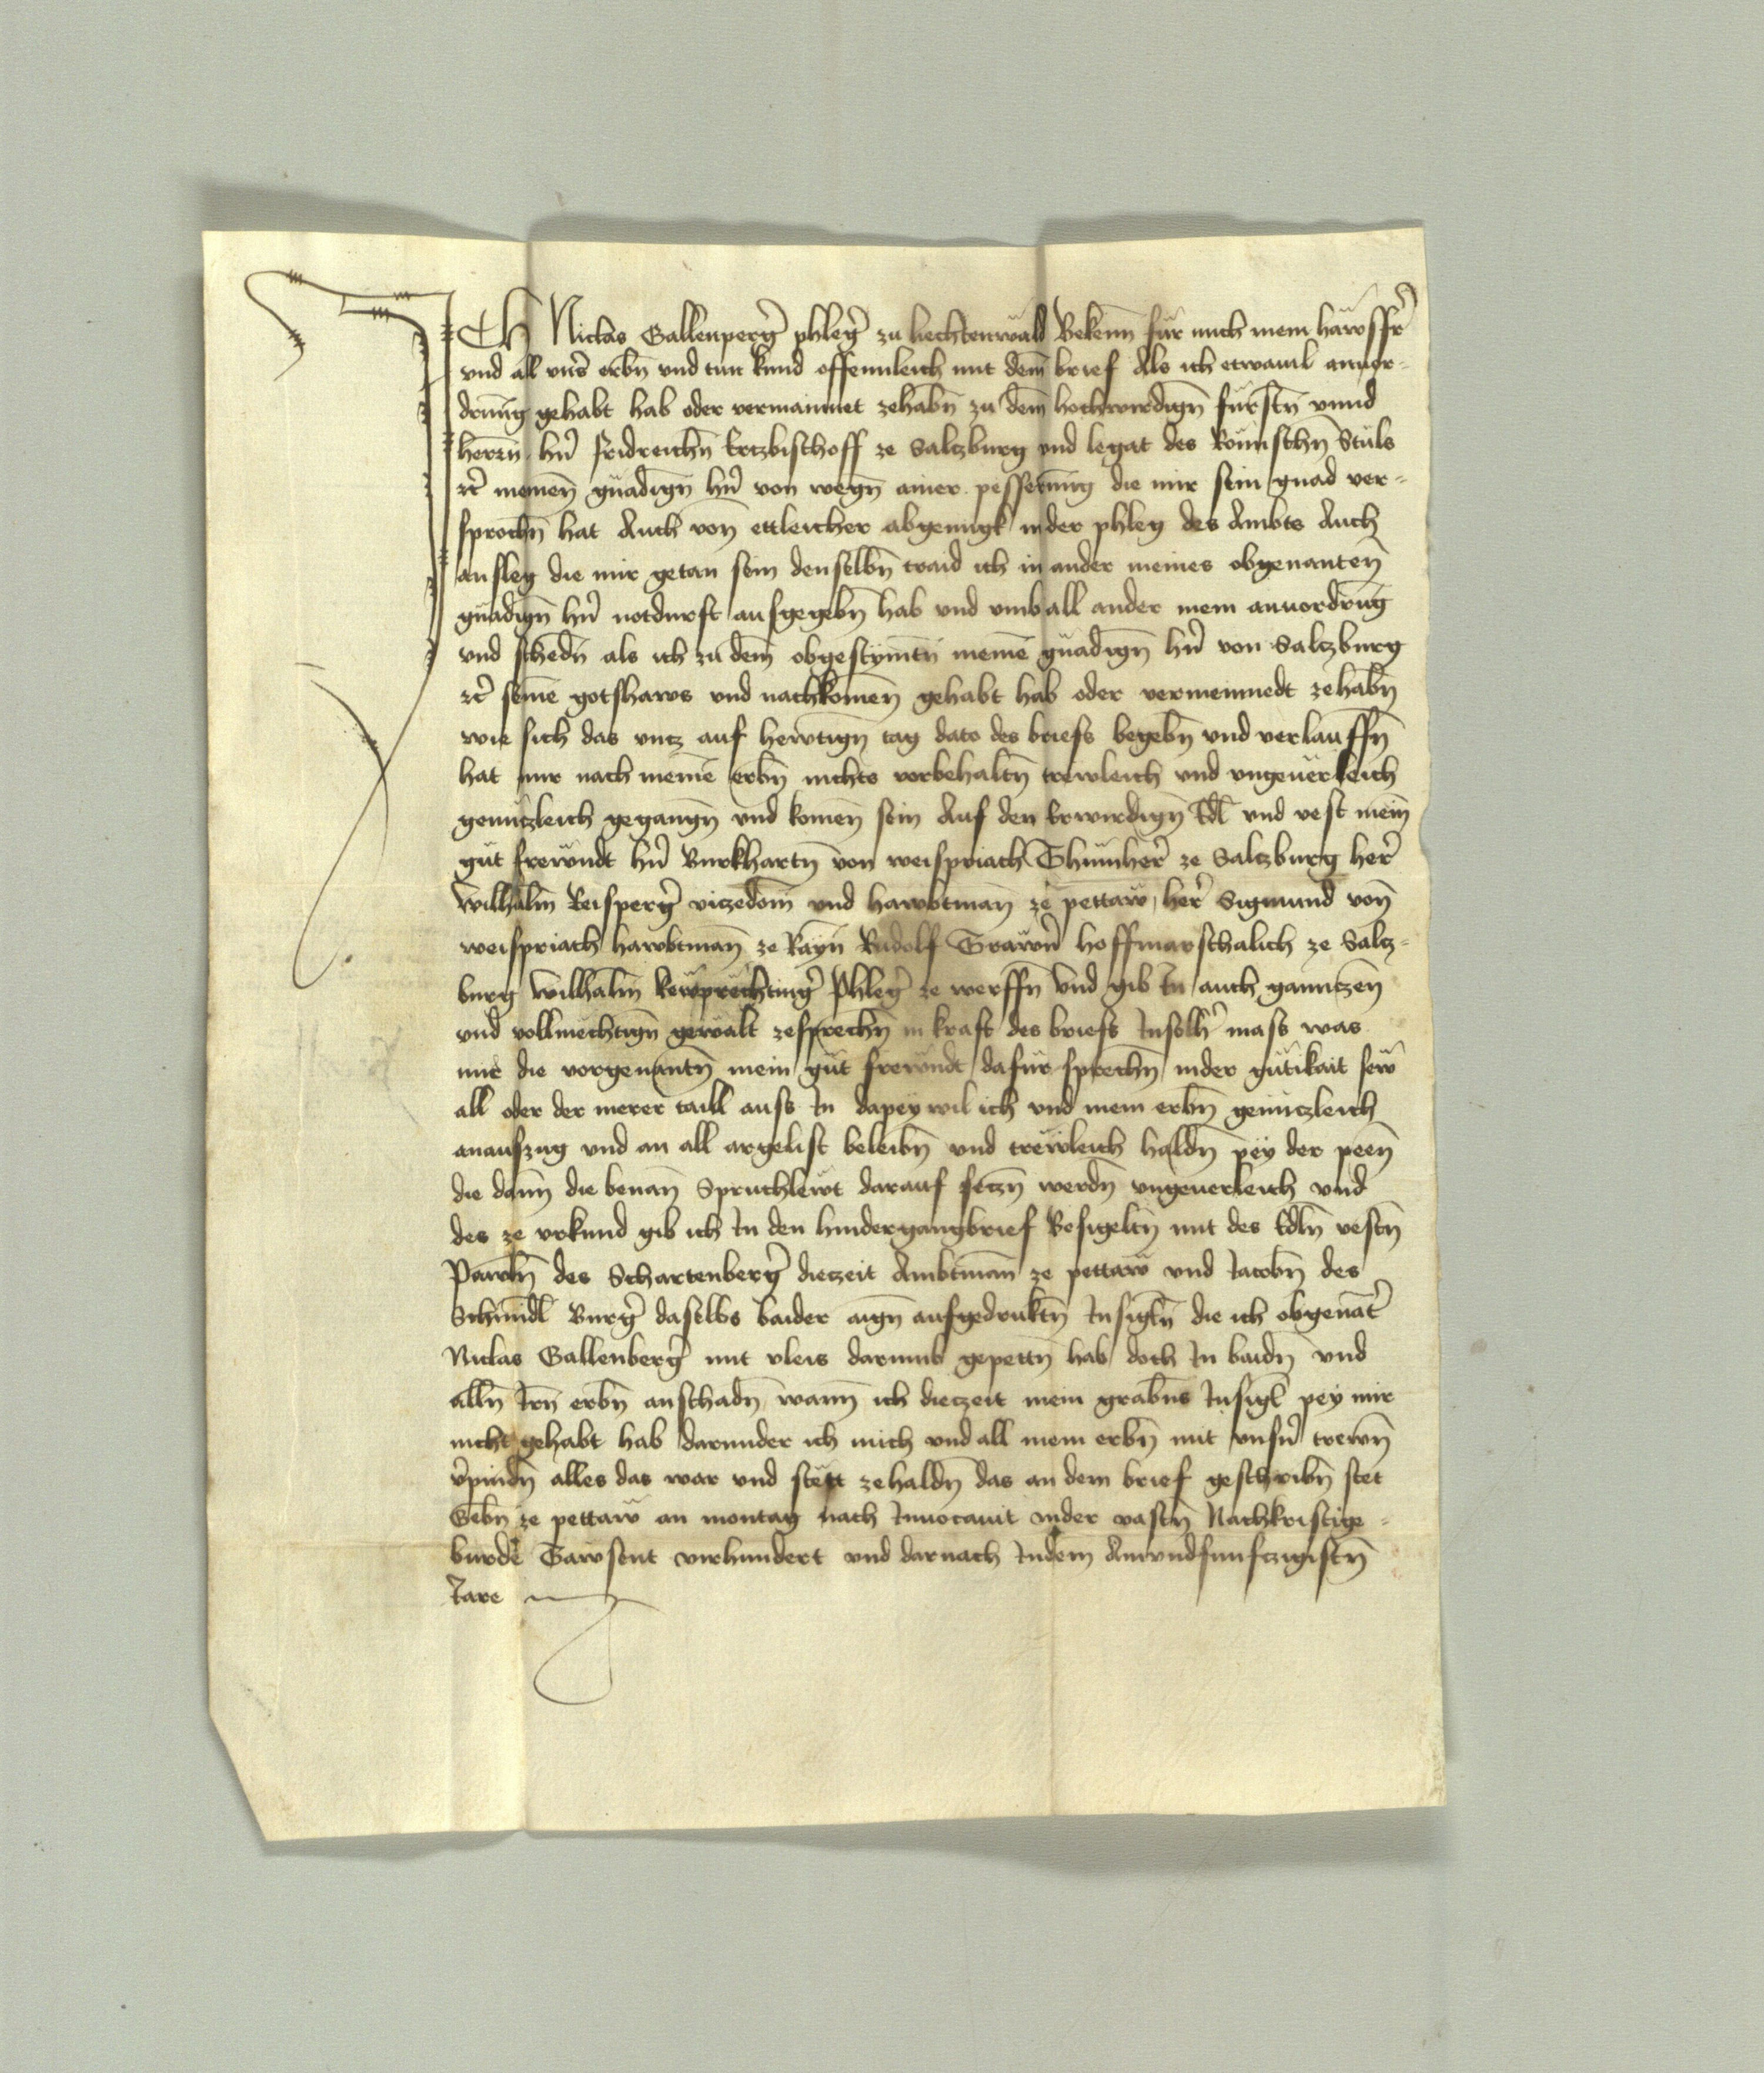 Ich Niclas Gallenperg̉ phleg̉ zu liechtenwald Bekenn für mich mein hawsfr̉
vnd all vns̉ erbn̄ vnd tun kund offennleich mit dem̄ brief Als ich etwauil anuor-
drung gehabt hab oder vermainnet zehabn̄ zu dem̄ hochwirdign̄ fürstn̄ vnnd
herrn̄ hn̉ fridreichn̄ Ertzbischoff ze Saltzburg vnd legat des Römischn̄ Stuls
ꝛc̉ meinen̄ gnädign̄ hn̉ von wegn̄ ainer pesserung die mir sein gnad ver-
sprochn̄ hat Auch von̄ ettleicher abgenngk inder phleg des Ambts Auch
anslag die mir getan sein denselbn̄ traid ich in ander meines obgenanten̄
gnädign̄ hn̉ notdurft ausgegebn̄ hab vnd vmb all ander mein anuordrūg
vnd schedn̄ als ich zu dem̄ obgestym̄tn̄ meinē gnädign̄ hn̉ von Saltzburg
ꝛc̉ seinē gotshaws vnd nachkomen̄ gehabt hab oder vermeinnedt zehabn̄
wie sich das vntz auf hewtign̄ tag dato des briefs begebn̄ vnd verlauffn̄
hat mir nach meinē erbn̄ nichts vorbehaltn̄ trewleich vnd vngeuerleich
genntzleich gegangn̄ vnd komen̄ sein Auf den Erwirdign̄ Edl̄ vnd vest mein̄
güt frewndt hn̉ Burkhartn̄ von weispriach Thümher̉ ze Saltzburg her̉
wilhalm̄ Reisperg̉ vitzedom̄ vnd hawbtman̄ ze pettaw, her̉ Sigmund von̄
weispriach hawbtman̄ ze Rayn̄ Rudolf Trawn̉ hoffmarschalich ze Saltz-
burg wilhalm̄ Rewtprechting̉ Phleg̉ ze werffn̄ Vnd gib In auch ganntzen̄
vnd vollmechtign̄ gewalt zesprechn̄ in kraft des briefs Insolh̉ mass was
mir die vorgenantn̄ mein güt frewndt dafur sprechn̄ inder gütikait sew
all oder der merer taill auss In dapey wil ich vnd mein erbn̄ genntzleich
anauszug vnd an all argelist beleibn̄ vnd trewleich haldn̄ pey der peen̄
die dann̄ die benan̄ Spruchlewt darauf setzn̄ werdn̄ vngeuerleich vnd
des ze vrkund gib ich In den hindergangbrief Besigeltn̄ mit des Edln̄ vestn̄
Pawln̄ des Schartenberg̉ dieczeit Ambtman̄ ze pettaw vnd Iacobn̄ des
Schmidl̄ Burg̉ daselbs baider aign̄ aufgedruktn̄ Insigln̄ die ich obgenāt̉
Niclas Gallenberg̉ mit vleis darumb gepettn̄ hab doch In baidn̄ vnd
alln̄ Irn̄ erbn̄ anschadn̄ wann̄ ich dieczeit mein grabns Insigl̄ pey mir
nicht gehabt hab darunder ich mich vnd all mein erbn̄ mit vnsn̉ trewn̄
v̉pindn̄ alles das war vnd stett zehaldn̄ das an dem brief geschribn̄ stet
Gebn̄ ze pettaw an montag nach Inuocauit inder vastn̄ Nachkristige-
burde Tawsent virhundert vnd darnach Indem Ainvndfunfczigistn̄
Iare